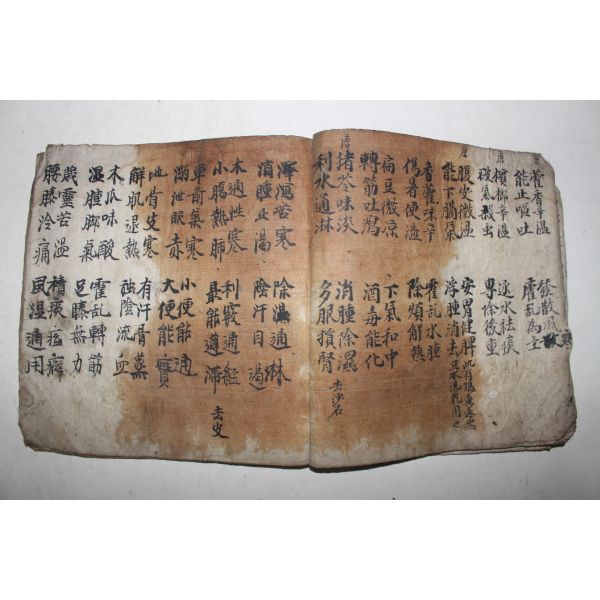 唐 藿香辛溫 發散風寒
能止嘔吐 霍亂為主
唐 檳榔辛溫 逐水祛痰
破氣殺虫 專除後重
唐 腹皮微溫 安胃健脾
能下膈氣 浮腫消去
香薷味辛 霍亂水腫
傷暑便澁 除煩解熱
扁豆微凉 下氣和中
轉筋吐瀉 酒毒能化
唐 猪苓味淡 消腫除濕 去沙石
利水通淋 多服損腎
澤瀉苦寒 除濕通淋
消腫止渴 陰汗自遏
木通性寒 利竅通經
小腸熱 最能導滯 去
車前氣寒 小便能通
溺泄眼赤 大便能實
地骨皮寒 有汗骨蒸
解肌退熱 強陰血
木瓜味酸 霍亂轉筋
濕腫脚氣 足膝無力
威靈苦溫 積痰痃癖
腰膝冷痛 風湿通用